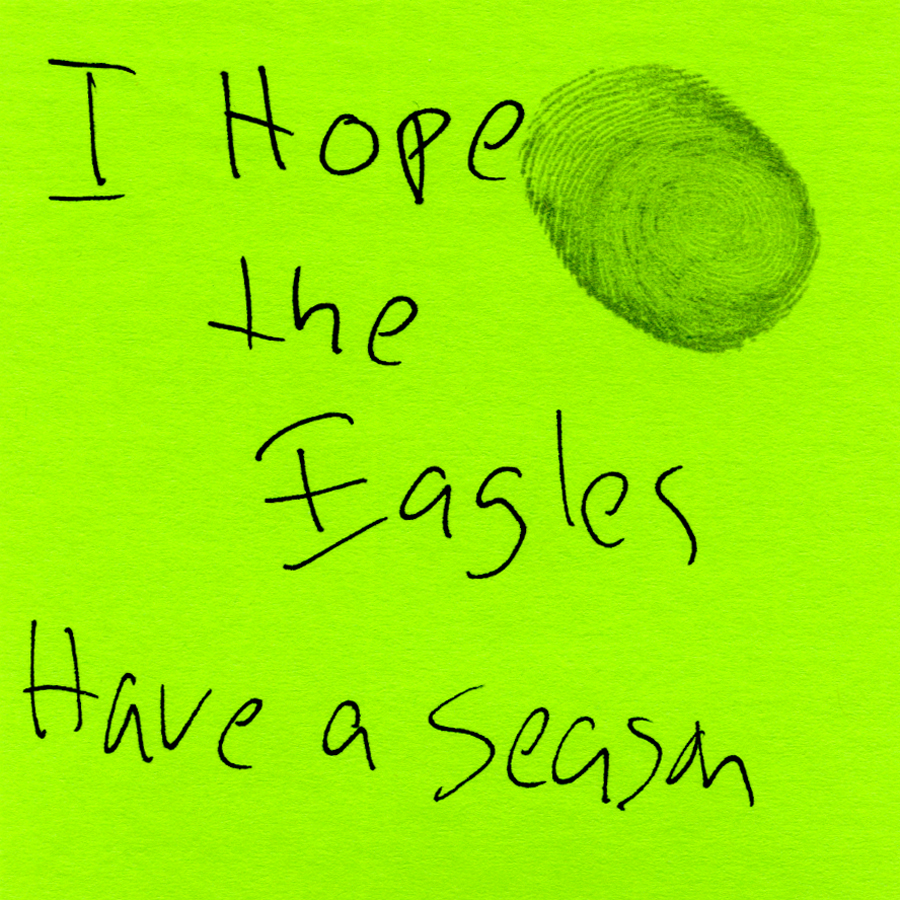 I Hope
the
Eagles
Have a season